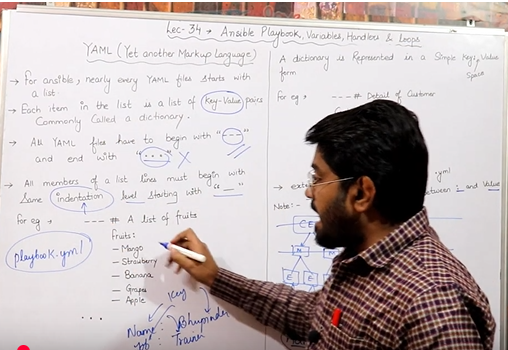 Lec-34 → Ansible Playbook, Variables, Handlers & loops
YAML (Yet another Markup Language)
→ For ansible, nearly every YAML files starts with
a list
→ Each item in the list is a list of Key-Value pairs
Commonly Called a dictionary.
→ All YAML files have to begin with "---"
and end with "..." X
→ All members of a list lines must begin with
Same indentation level starting with "—"
for eg → --- # A list of fruits
fruits:
playbook.yml
— Mango
— Strawberry
— Banana
— Grapes
— Apple
...
Key
Name : Bhupinder
Job : Trainer
A dictionary is Represented in a Simple Key: Value
form
Space
For eg → --- # Detail of Customer
.yml
→ exte
between : and Value
Note:-
CE
M
E E